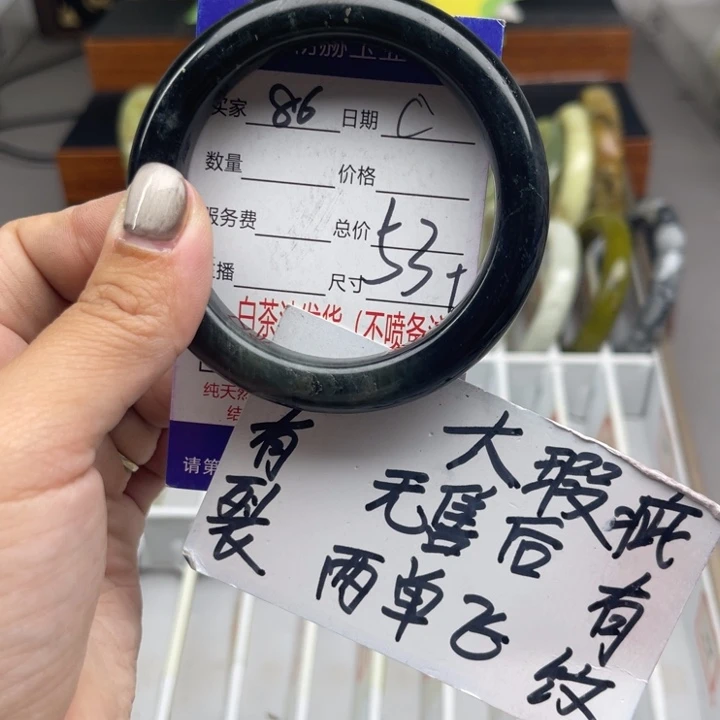 买家 86 日期
数量 价格
服务费 总价
主播 尺寸 53+
白茶
(不喷备
纯天然
结
请第
有裂
大瑕疵
无售后
有纹
两单飞